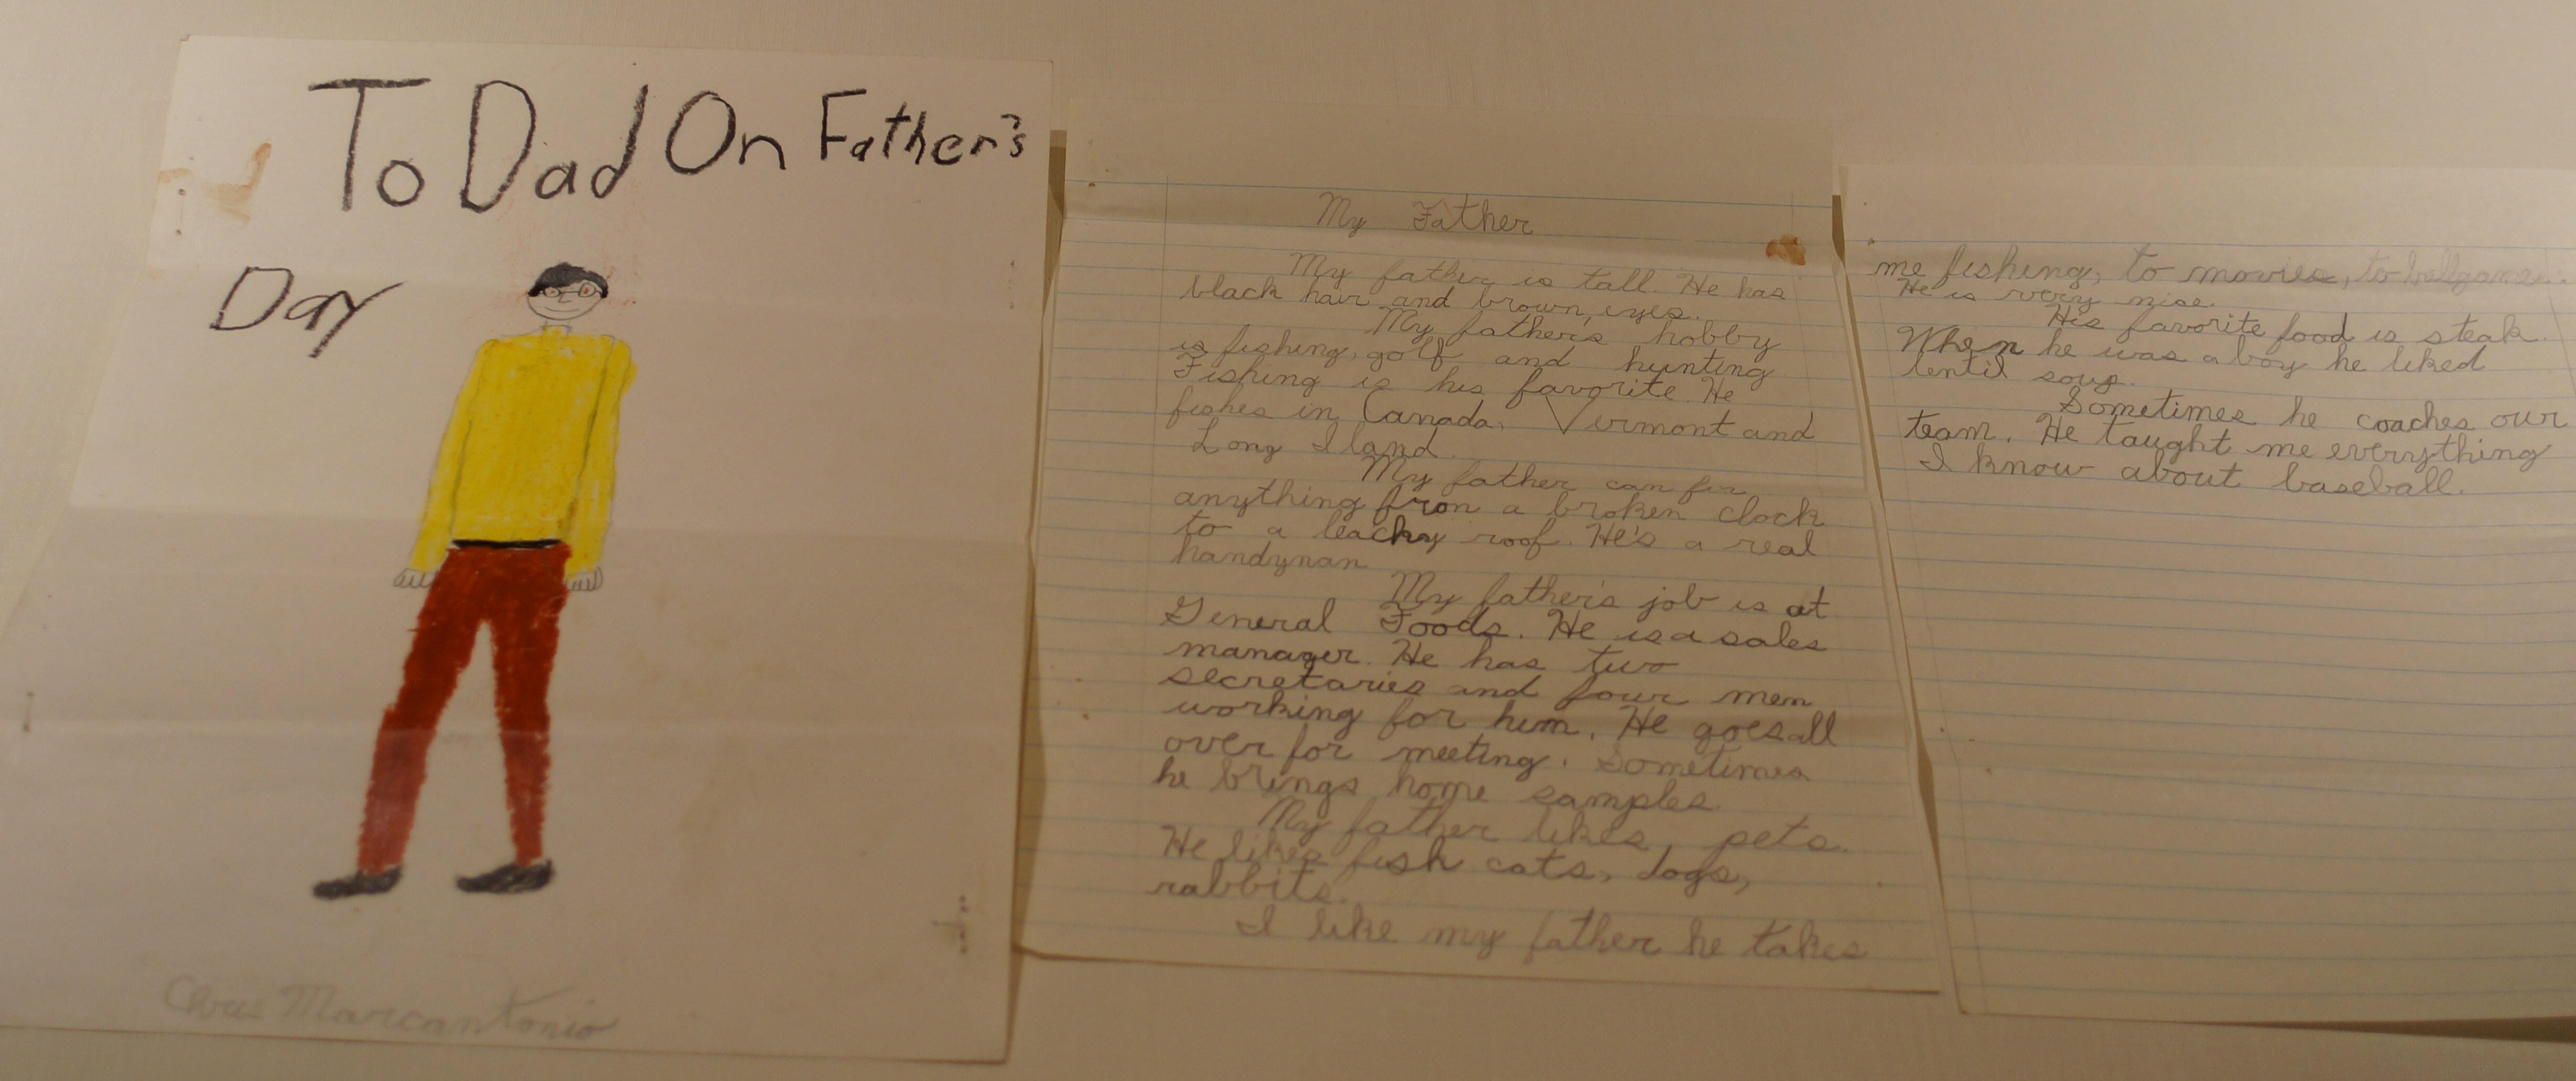 To Dad On Father's
Day
Chris Marcantonio
My Father
My father is tall. He has
black hair and brown eyes.
My father's hobby
is fishing, golf and hunting
Fishing is his favorite. He
fishes in Canada, Vermont and
Long Iland.
My father can fix
anything fron a broken clock
to a leacky roof. He's a real
handynan
My father's job is at
General Foods. He is a sales
manager. He has two
secretaries and four men
working for him. He goes all
over for meeting. Sometimes
he brings home samples.
My father likes pets.
He likes fish cats, dogs,
rabbits.
I like my father he takes
me fishing, to movies, to ballgames.
He is very nise.
His favorite food is steak.
When he was a boy he liked
lentil soup.
Sometimes he coaches our
team. He taught me everything
I know about baseball.